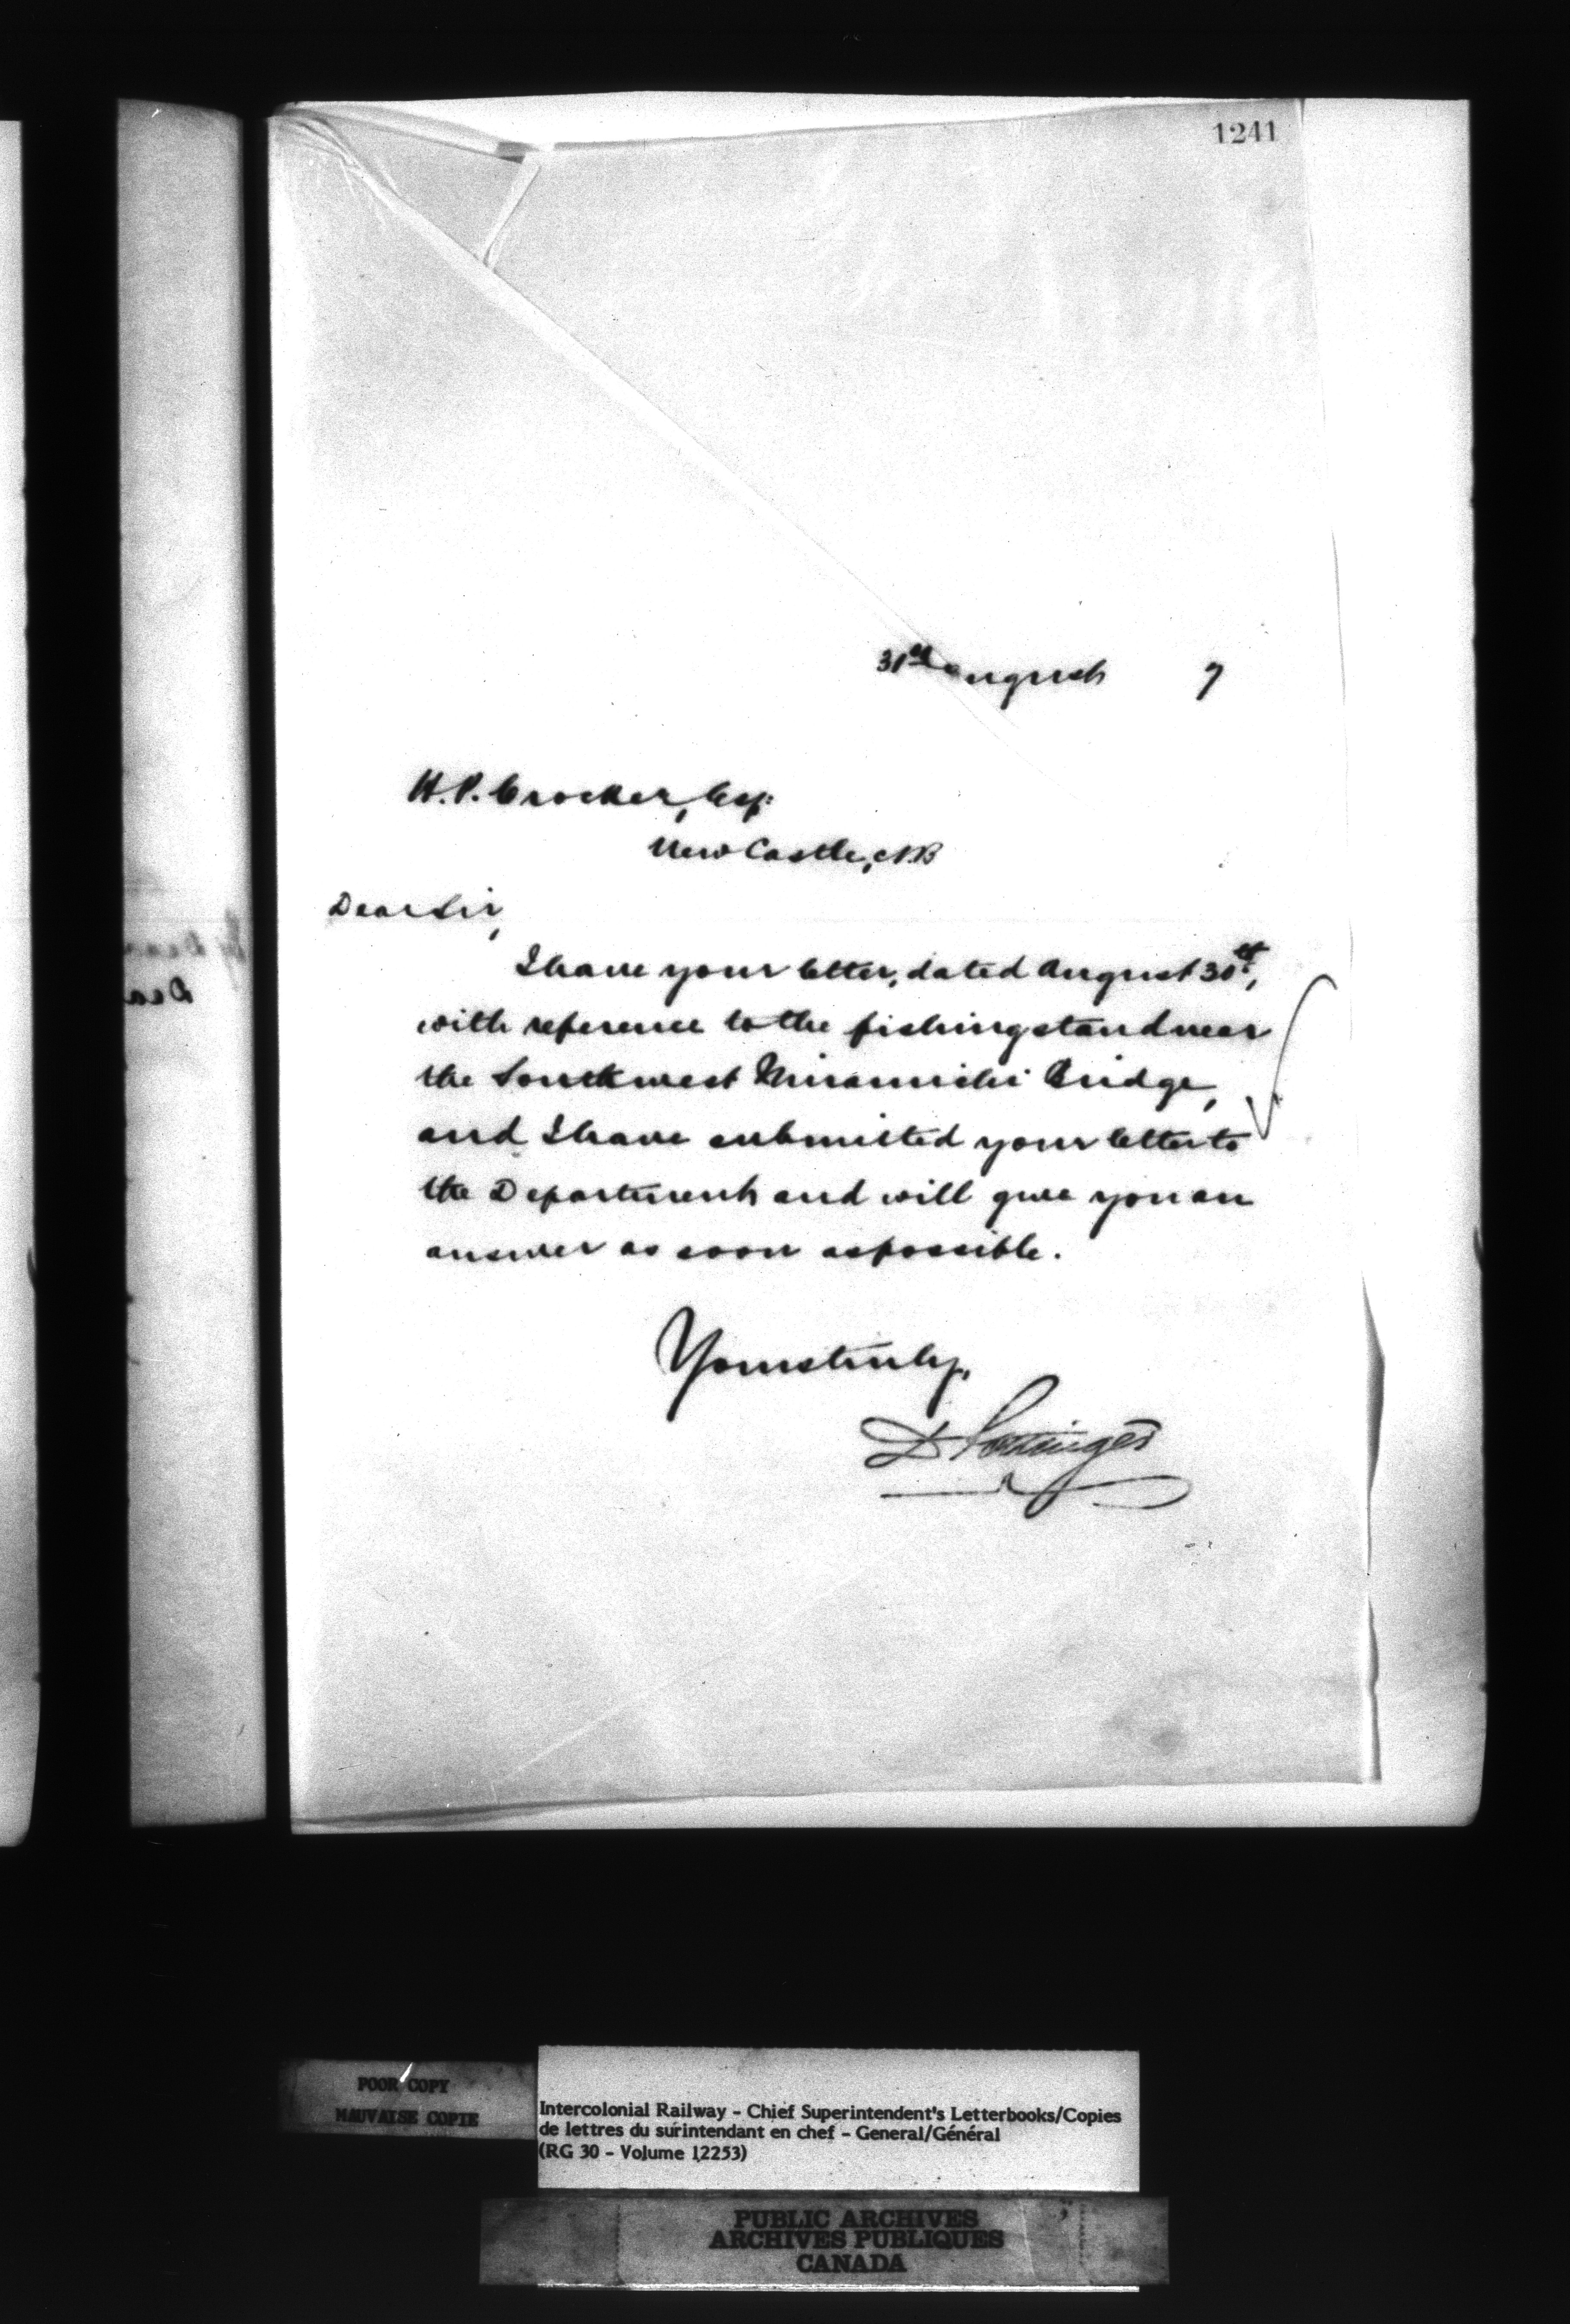 1241
31st August 7
H.P. Crocker, Esq:
New Castle, N.B
Dear Sir,
I have your letter, dated August 30th,
with reference to the fishing stand near
the Southwest Miramichi Bridge,
and I have submitted your letter to
the Department and will give you an
answer as soon as possible.
Yours truly,
D Pottinger
POOR COPY
MAUVAISE COPIE
Intercolonial Railway - Chief Superintendent's Letterbooks/Copies
de lettres du surintendant en chef - General/Général
(RG 30 - Volume 12253)
PUBLIC ARCHIVES
ARCHIVES PUBLIQUES
CANADA